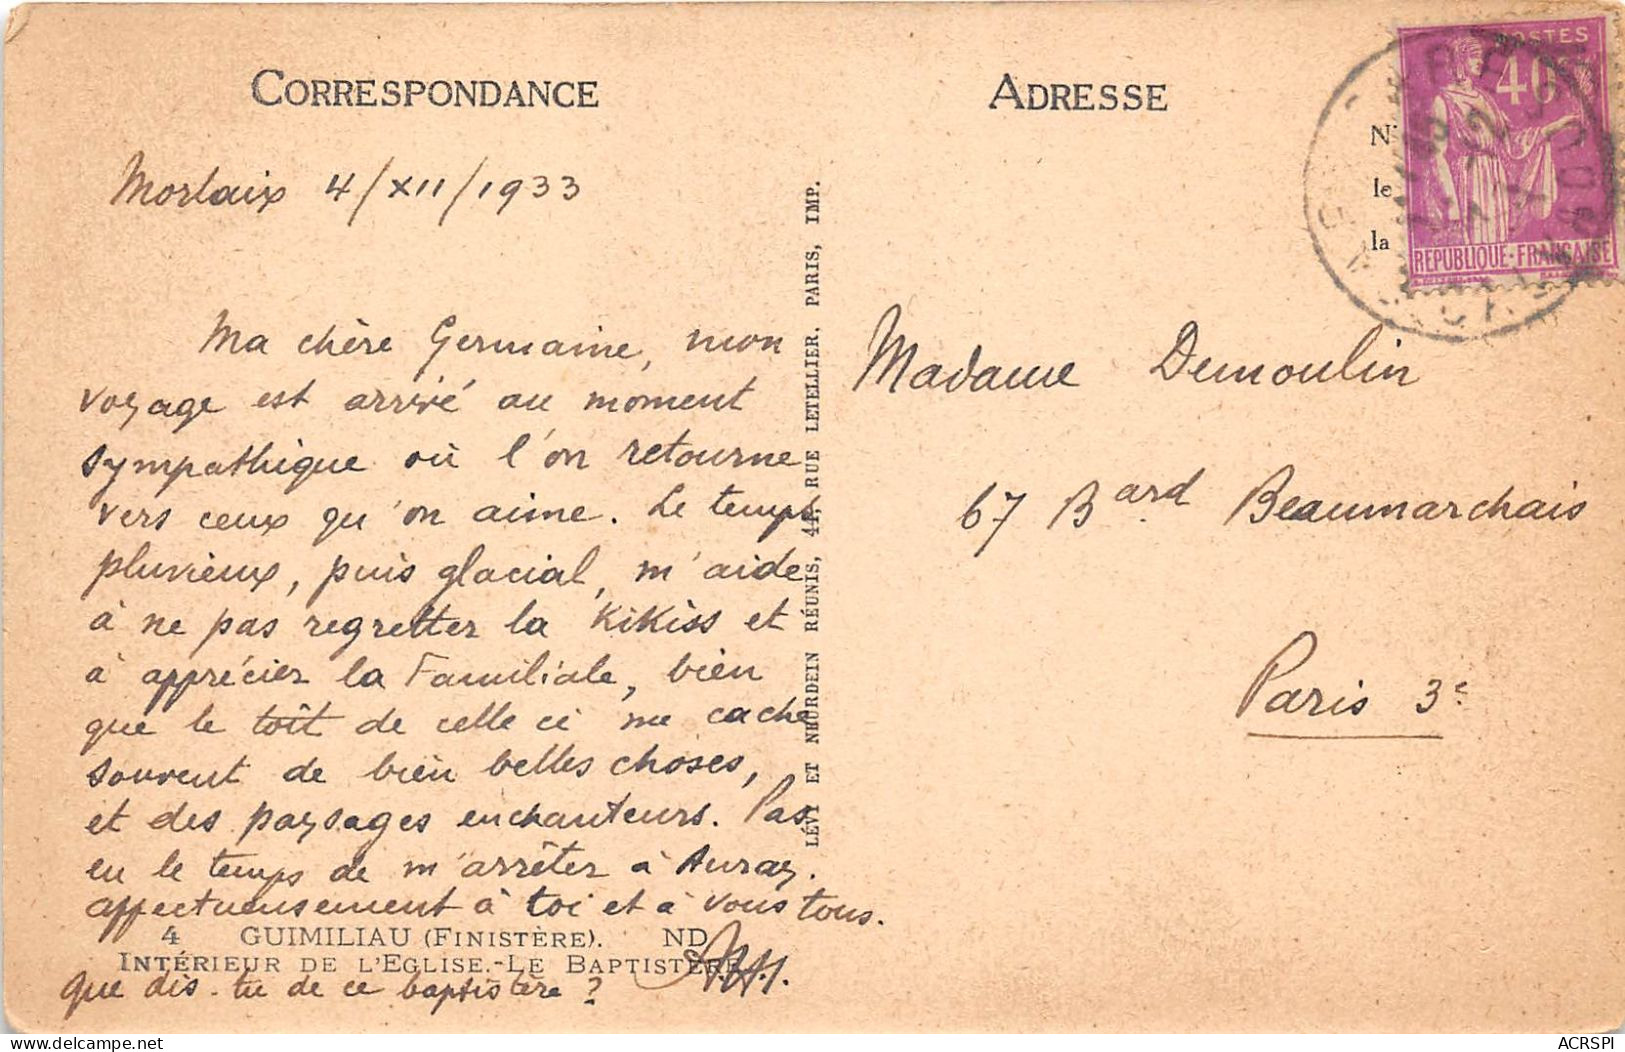 CORRESPONDANCE
Morlaix 4/XII/1933
Ma chère Germaine, mon
voyage est arrivé au moment
sympathique où l'on retourne
vers ceux qu'on aime. Le temps
pluvieux, puis glacial, m'aide
à ne pas regretter la KiKiss et
à apprécier la Familiale, bien
que le toit de celle ci me cache
souvent de bien belles choses,
et des paysages enchanteurs. Pas
eu le temps de m'arrêter à Auray.
affectueusement à toi et à vous tous.
4 GUIMILIAU (FINISTÈRE). ND
INTÉRIEUR DE L'EGLISE.-LE BAPTISTÈRE
que dis-tu de ce baptistère ?
LÉVY ET NEURDEIN RÉUNIS, 44, RUE LETELLIER, PARIS, IMP.
ADRESSE
N
le
la
POSTES
40
REPUBLIQUE-FRANÇAISE
Madame Demoulin
67 Bard Beaumarchais
Paris 3e
ACRSPI